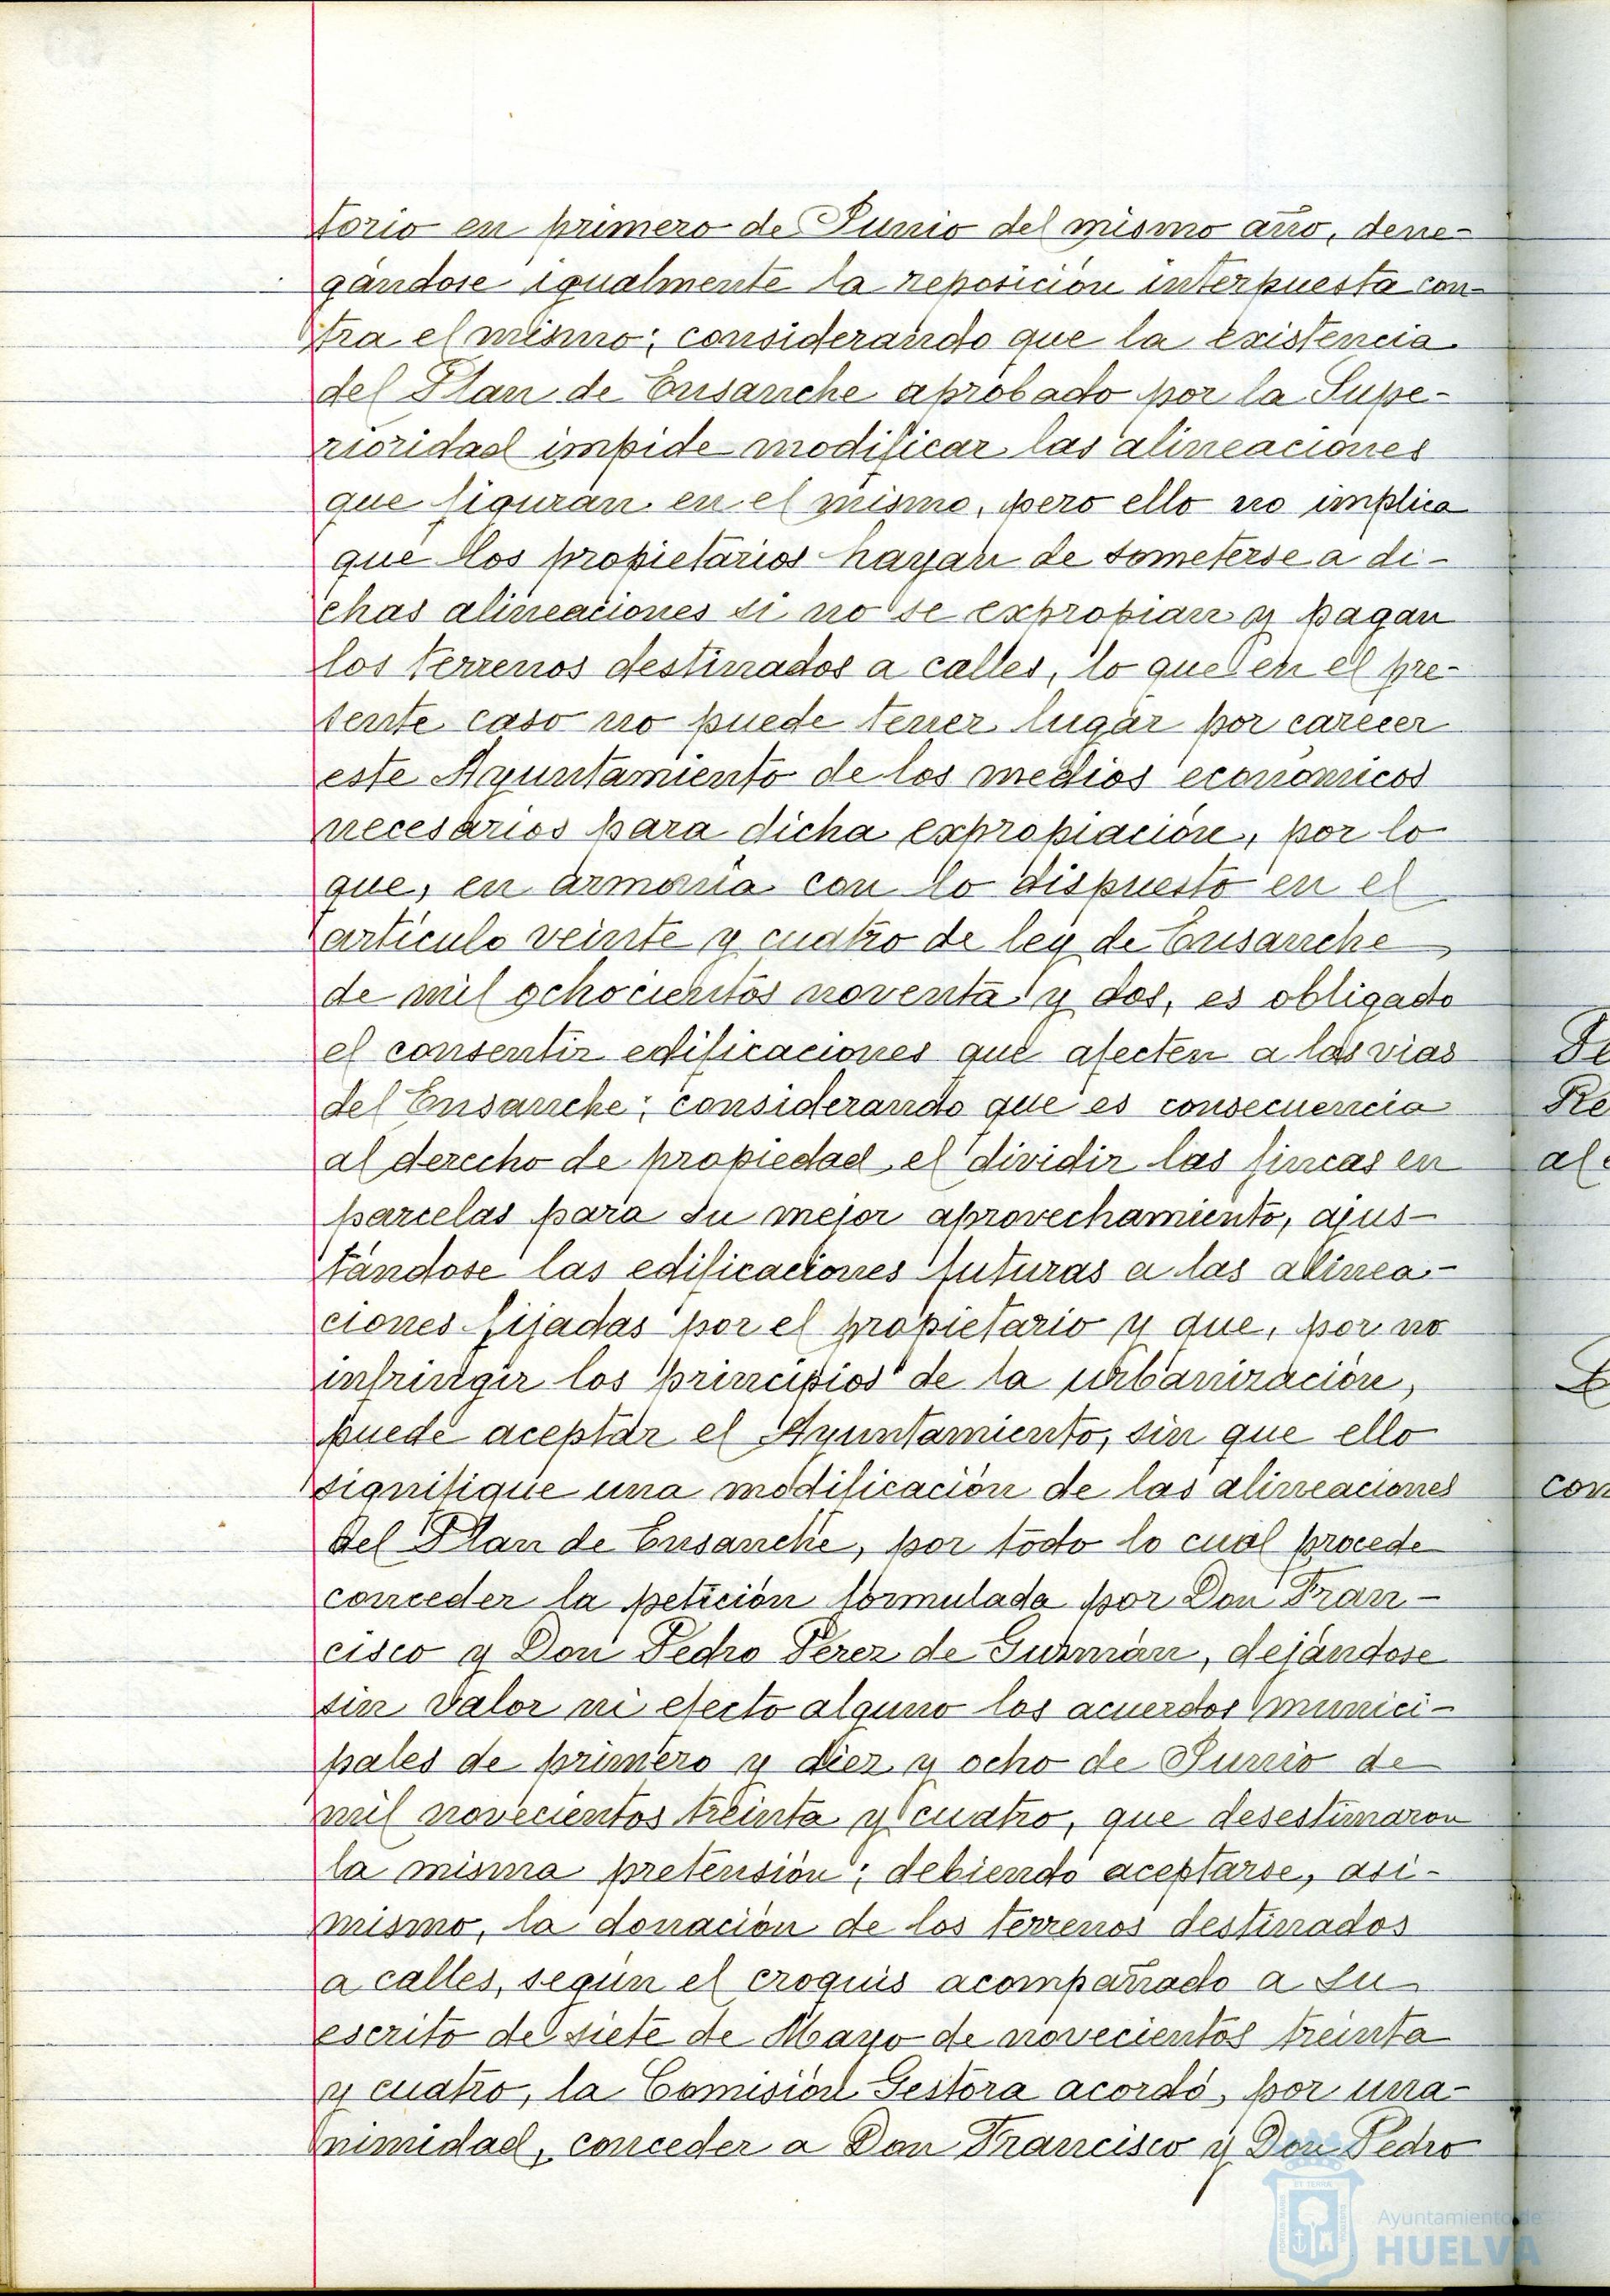 torio en primero de Junio del mismo año, dene-
gándose igualmente la reposición interpuesta con-
tra el mismo; considerando que la existencia
del Plan de Ensanche aprobado por la Supe-
rioridad impide modificar las alineaciones
que figuran en el mismo, pero ello no implica
que los propietarios hayan de someterse a di-
chas alineaciones si no se expropian y pagan
los terrenos destinados a calles, lo que en el pre-
sente caso no puede tener lugar por carecer
este Ayuntamiento de los medios económicos
necesarios para dicha expropiación, por lo
que, en armonía con lo dispuesto en el
artículo veinte y cuatro de ley de Ensanche
de mil ochocientos noventa y dos, es obligado
el consentir edificaciones que afecten a las vias
del Ensanche; considerando que es consecuencia
al derecho de propiedad el dividir las fincas en
parcelas para su mejor aprovechamiento, ajus-
tándose las edificaciones futuras a las alinea-
ciones fijadas por el propietario y que, por no
infringir los principios de la urbanización,
puede aceptar el Ayuntamiento, sin que ello
signifique una modificación de las alineaciones
del Plan de Ensanche, por todo lo cual procede
conceder la petición formulada por Don Fran-
cisco y Don Pedro Perez de Guzmán, dejándose
sin valor ni efecto alguno los acuerdos munici-
pales de primero y diez y ocho de Junio de
mil novecientos treinta y cuatro, que desestimaron
la misma pretensión; debiendo aceptarse, asi-
mismo, la donación de los terrenos destinados
a calles, según el croquis acompañado a su
escrito de siete de Mayo de novecientos treinta
y cuatro, la Comisión Gestora acordó, por una-
nimidad, conceder a Don Francisco y Don Pedro
Ayuntamiento de
HUELVA